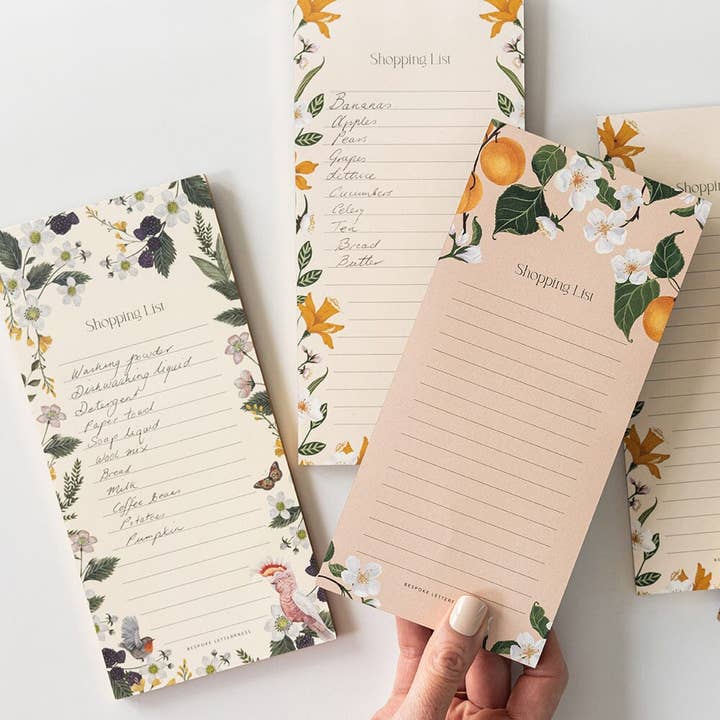 Shopping List
Washing powder
Dishwashing liquid
Detergent
Paper towel
Soap liquid
Wool mix
Bread
Milk
Coffee Beans
Potatoes
Pumpkin
BESPOKE LETTERPRESS
Shopping List
Bananas
Apples
Pears
Grapes
Lettuce
Cucumbers
Celery
Tea
Bread
Butter
Shopping List
BESPOKE LETTERPRE
Shopping